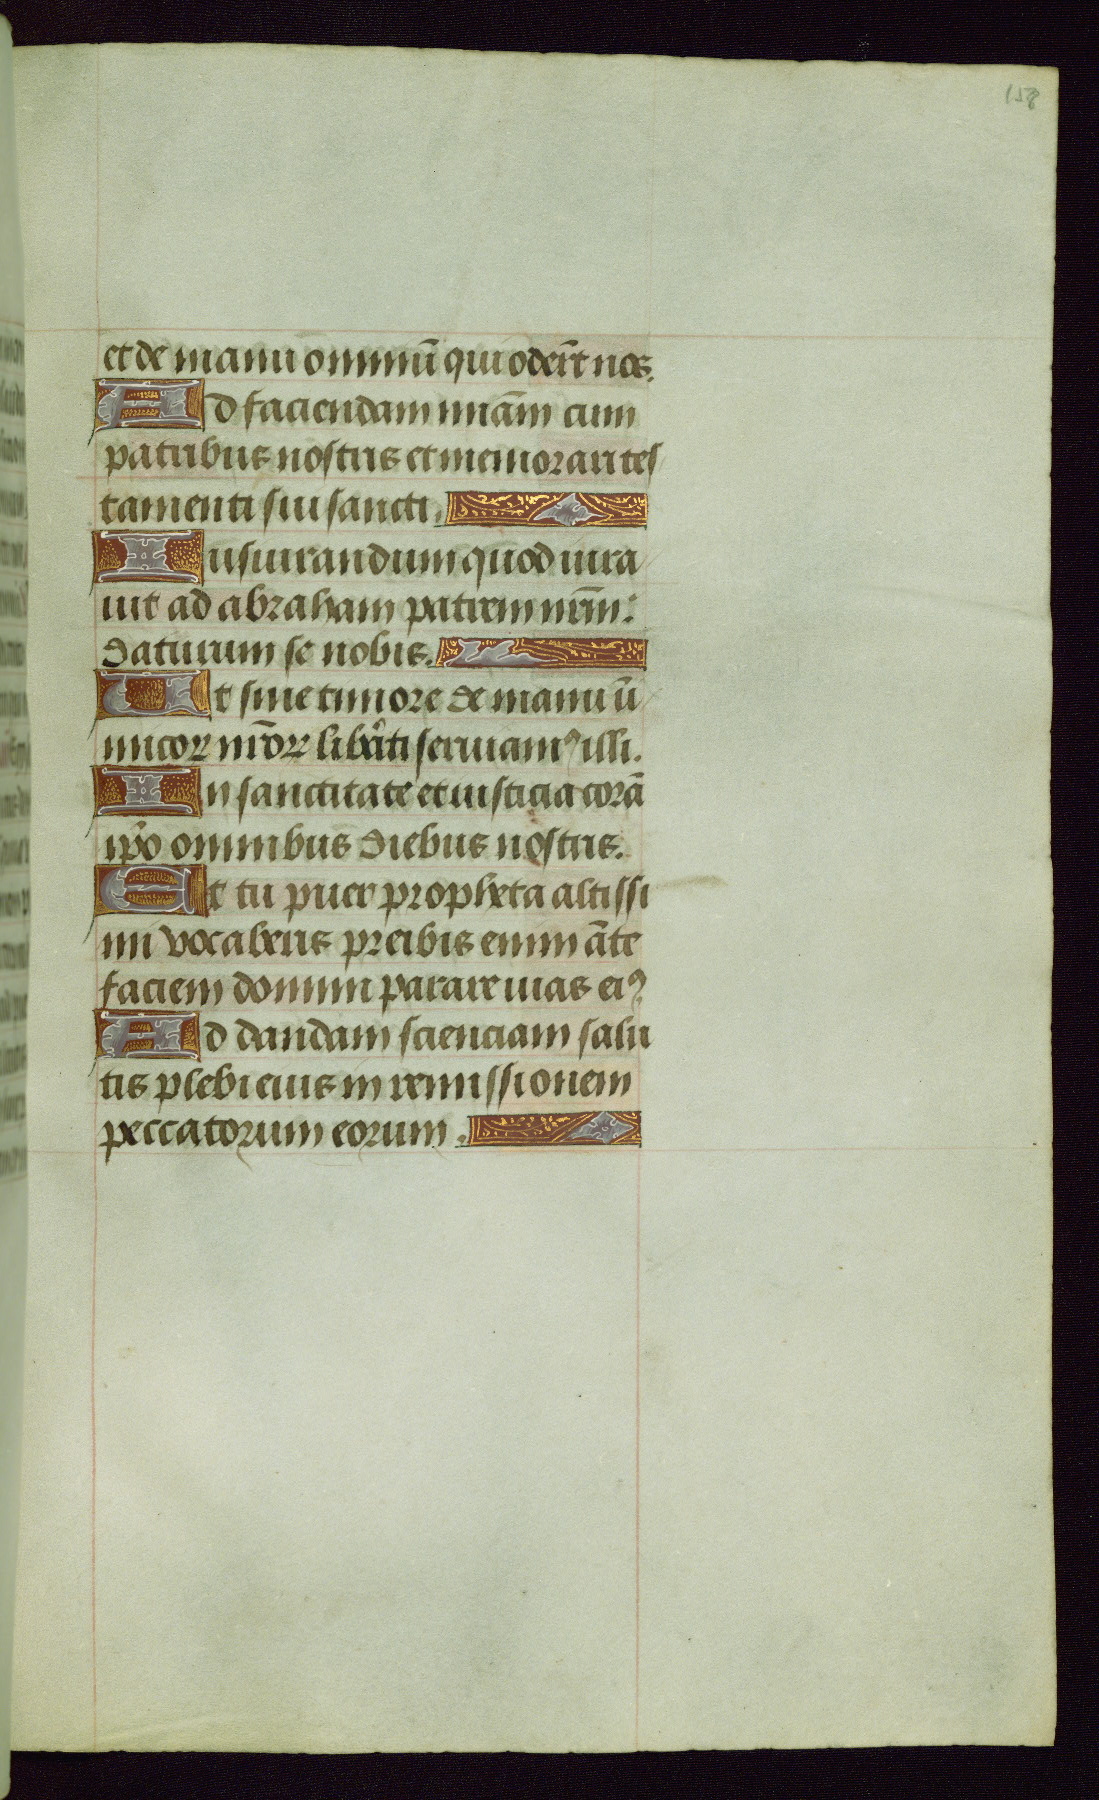 158
et de manu omniū qui oder̄t nos.
Ad faciendam miā̄m cum
patribus nostris et memorari tes
tamenti sui sancti.
Iusiurandum quod iura
uit ad abraham patrem nr̄m:
daturum se nobis.
Ut sine timore de manu ū
nicoꝝ nr̄oꝝ lib̄ati seruiamꝰ illi.
In sanctitate et iusticia corā
ip̄o omnibus diebus nostris.
Et tu puer propheta altissi
mi vocaberis preibis enim āte
faciem domini parare uias eiꝰ
Ad dandam scienciam salu
tis plebi eius in remissionem
peccatorum eorum.